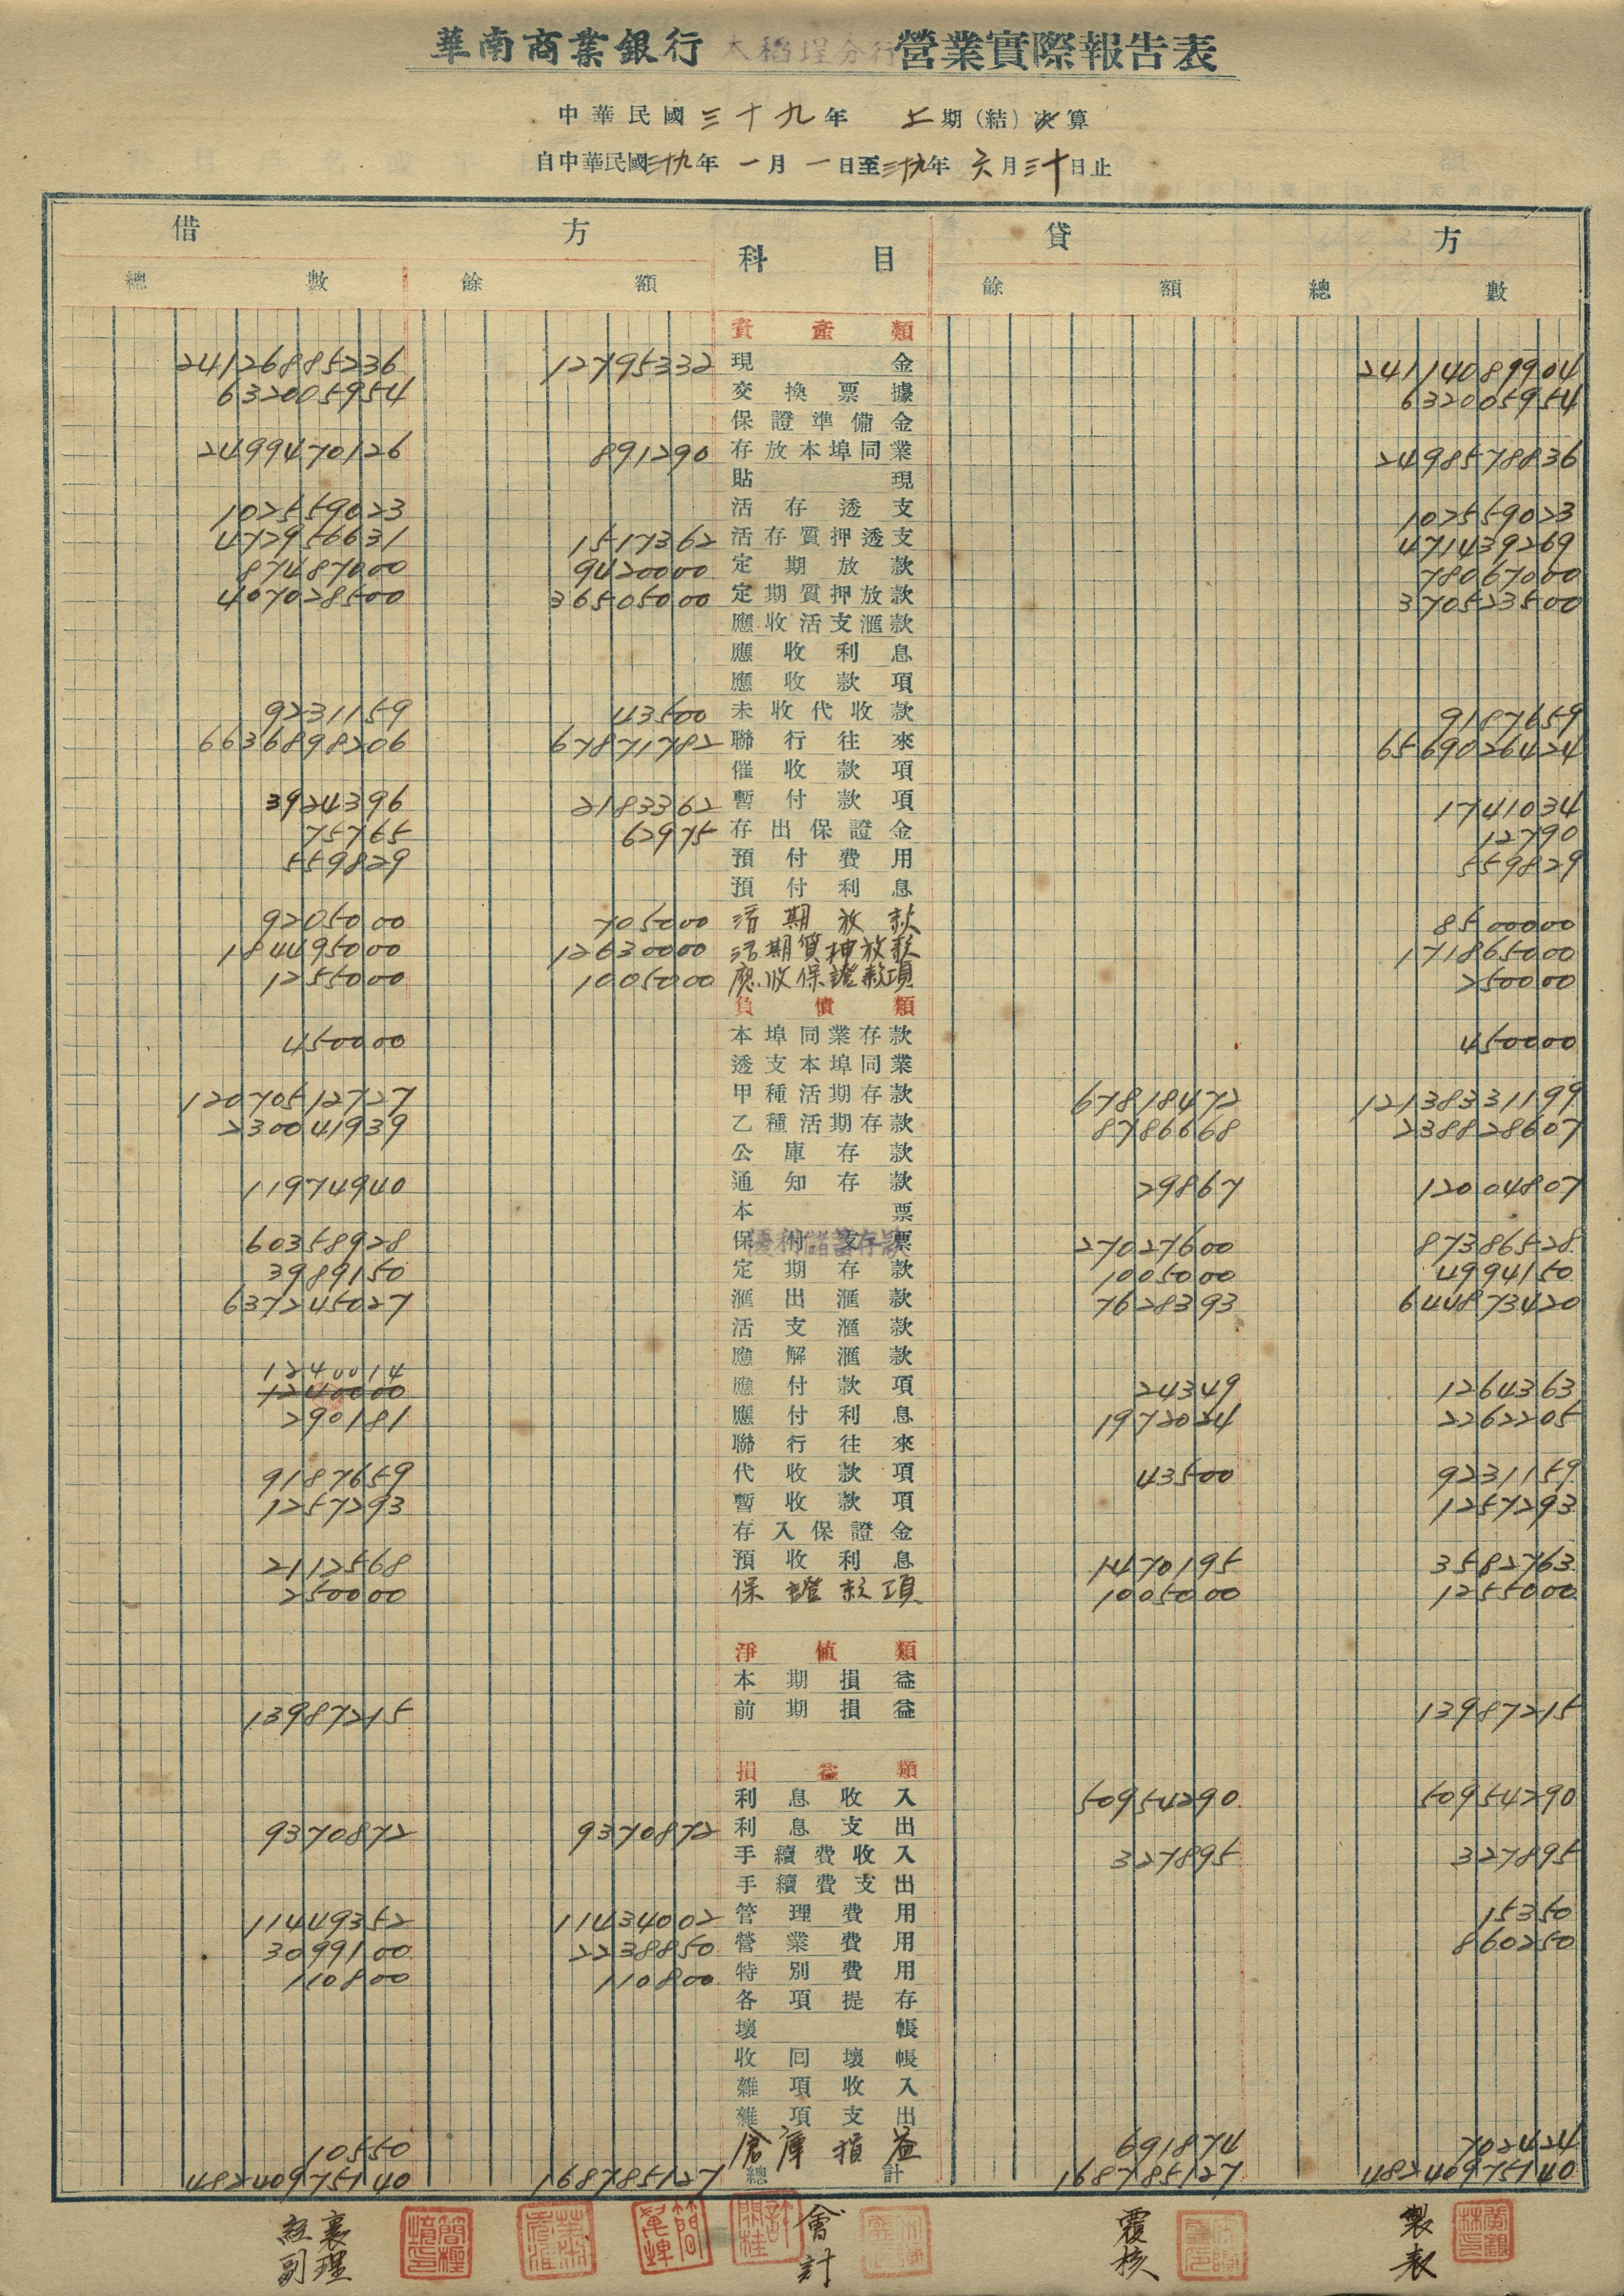 華南商業銀行 大稻埕分行 營業實際報告表
中華民國三十九年 上期(結)決算
自中華民國三十九年一月一日至三十九年六月三十日止
借方 科目 貸方
總數 餘額 餘額 總數
資產類
24126885236 12795332 現金 24114089904
632005954 交換票據 632005954
保證準備金
2499470126 891290 存放本埠同業 2498578836
貼現
102559023 活存透支 102559023
472956631 1517362 活存質押透支 471439269
87487000 9420000 定期放款 78067000
407028500 36505000 定期質押放款 370523500
應收活支滙款
應收利息
應收款項
9231159 43500 未收代收款 9187659
6636898206 67871782 聯行往來 6569026424
催收款項
3924396 2183362 暫付款項 1741034
75765 62975 存出保證金 12790
559829 預付費用 559829
預付利息
9205000 705000 活期放款 8500000
184495000 12630000 活期質押放款 171865000
1255000 1005000 應收保證款項 250000
負債類
450000 本埠同業存款 450000
透支本埠同業
甲種活期存款
12070512727 67818472 12138331199
230041939 乙種活期存款 8786668 238828607
公庫存款
11974940 通知存款 29867 12004807
本票
60358928 保付支票 優利儲蓄存款 27027600 87386528
3989150 定期存款 1005000 4994150
637245027 滙出滙款 7628393 644873420
活支滙款
應解滙款
1240014
1240000 應付款項 24349 1264363
290181 應付利息 1972024 2262205
聯行往來
9187659 代收款項 43500 9231159
1257293 暫收款項 1257293
存入保證金
2112568 預收利息 1470195 3582763
250000 保證款項 1005000 1255000
淨值類
本期損益
13987215 前期損益 13987215
損益類
利息收入 50954290 50954290
9370872 9370872 利息支出
手續費收入 327895 327895
手續費支出
11449352 11434002 管理費用 15350
3099100 2238850 營業費用 860250
110800 110800 特別費用
各項提存
壞帳
收回壞帳
雜項收入
雜項支出
10550 倉庫損益 691874 702424
48240975140 168785127 總計 168785127 48240975140
經副襄理 會計 覆核 製表